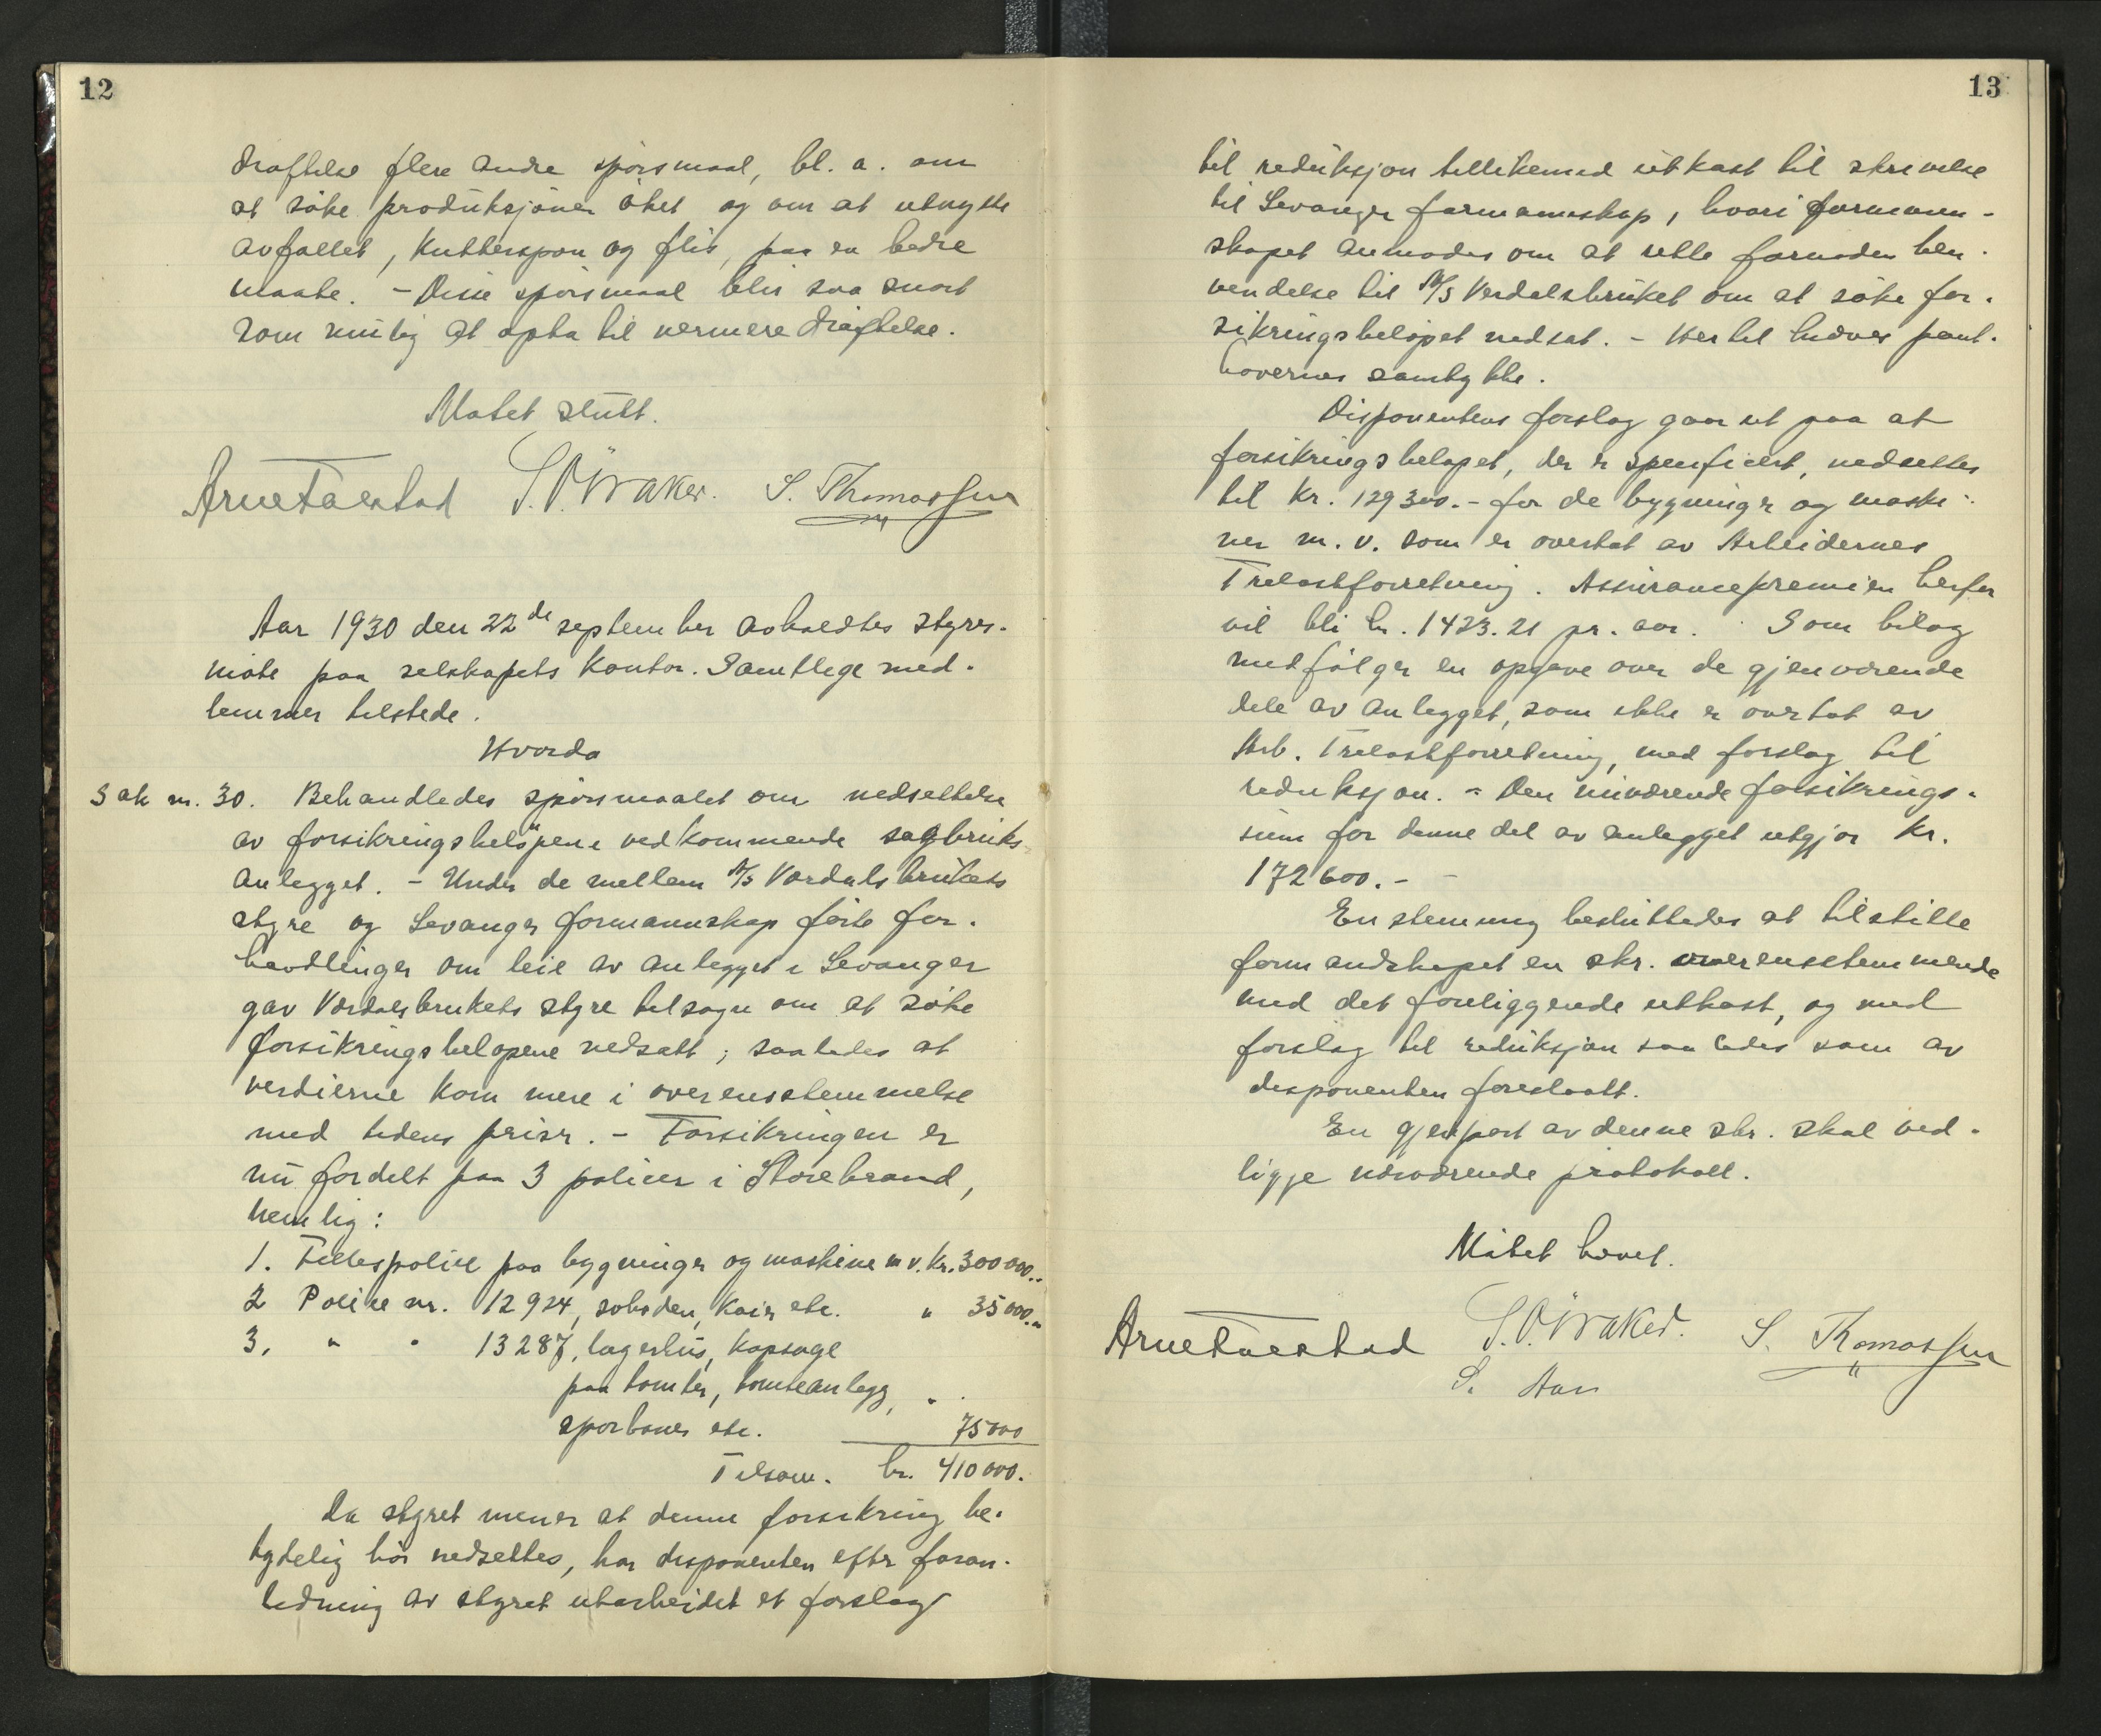 12
drøftelse flere andre spørsmaal, bl. a. om
at søke produksjonen øket og om at utnytte
avfallet, kutterspon og flis, paa en bedre
maate. - Disse spørsmaal blir saa snart
som mulig at opta til nermere drøftelse.
Møtet slutt.
Arne Taestad S. O. Waker. S. Thomassen
Aar 1930 den 22de september avholdtes styres-
møte paa selskapets kontor. Samtlege med-
lemmer tilstede.
Hvorda
Sak nr. 30. Behandledes spørsmaalet om nedsettelse
av forsikringsbeløpene vedkommende sagbruks-
anlegget. - Under de mellem A/S Værdalsbrukets
styre og Levanger formannskap førte for-
handlinger om leie av anlegget i Levanger
gav Værdalsbrukets styre tilsagn om at søke
forsikringsbeløpene nedsatt; saaledes at
verdierne kom mere i overensstemmelse
med tidens priser. - Forsikringen er
nu fordelt paa 3 policer i Storebrand,
nemlig:
1. Fellespolice paa bygninger og maskine m v. kr. 300 000.-
2 Police nr. 12924, kaier etc. " 35 000.-
3. " " 13287, lagerhus, kapsage
paa tomter, tomteanlegg, "
sporbaner etc. 75 000
Tilsam. kr. 410 000.
Da styret mener at denne forsikring be-
tydelig bør nedsettes, har disponenten efter foran-
ledning av styret utarbeidet et forslag
13
til reduksjon tillikemed utkast til skrivelse
til Levanger formannskap, hvori formann-
skapet anmodes om at rette fornøden hen-
vendelse til A/S Verdalsbruket om at søke for-
sikringsbeløpet nedsat. - Hertil kræves pant-
havernes samtykke.
Disponentens forslag gaar ut paa at
forsikringsbeløpet, der er spesificert, nedsettes
til kr. 129300.- for de bygninger og maski-
ner m. v. som er overtat av Arbeidernes
Trelastforretning. Assurancepremien herfor
vil bli kr. 1423.21 pr. aar. Som bilag
medfølger en opgave over de gjenværende
dele av anlegget, som ikke er overtat av
Arb. Trelastforretning, med forslag til
reduksjon. - Den nuværende forsikrings-
sum for denne del av anlegget utgjør kr.
172600.-
Enstemmig besluttedes at tilstille
formandskapet en skr. overensstemmende
med det foreliggende utkast, og med
forslag til reduksjon saaledes som av
disponenten foreslaatt.
En gjenpart av denne skr. skal ved-
ligge nærværende protokoll.
Møtet hævet.
Arne Taestad S. O. Waker. S. Thomassen
S. Aas